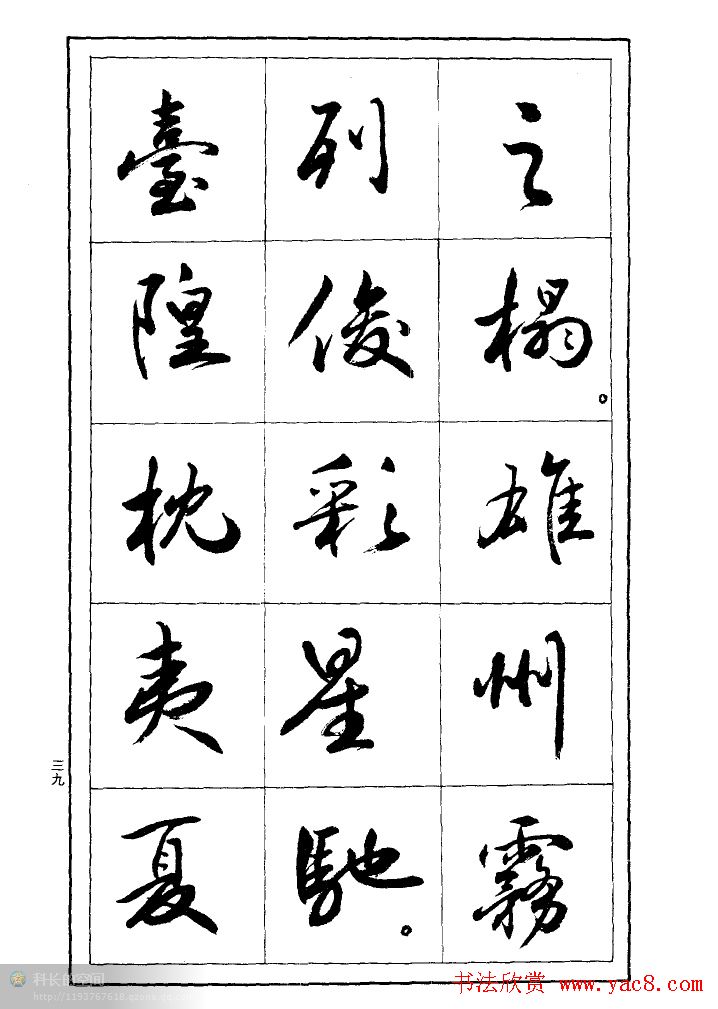 之榻。雄州霧
列俊彩星馳。
臺隍枕夷夏
三九
科长的空间
http://1193767618.qzone.qq.com
书法欣赏 www.yac8.com